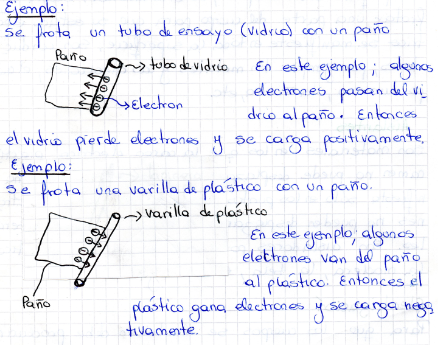 Ejemplo:
Se frota un tubo de ensayo (vidrio) con un paño
Paño
→ tubo de vidrio
→ Electron
En este ejemplo; algunos
electrones pasan del vi
drio al paño. Entonces
el vidrio pierde electrones y se carga positivamente.
Ejemplo:
Se frota una varilla de plástico con un paño.
→ varilla de plástico
Paño
En este ejemplo, algunos
elektrones van del paño
al plástico. Entonces el
plástico gana electrones y se carga nega
tivamente.